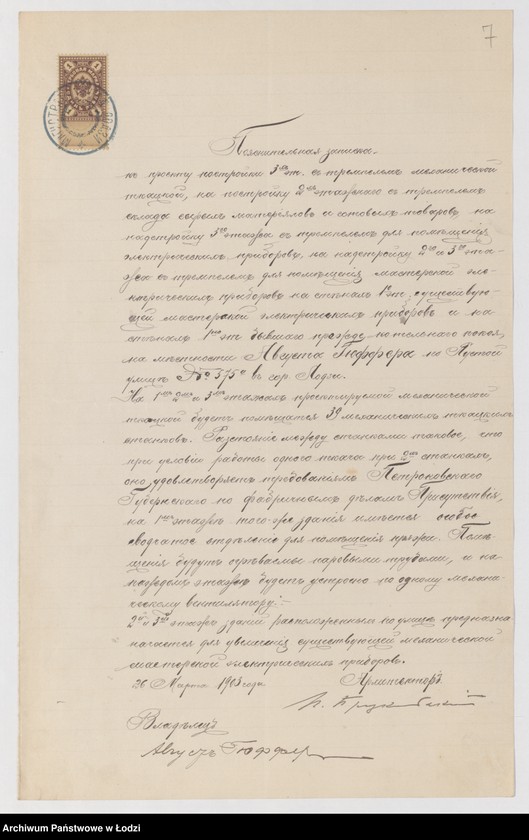 7
Пояснительная записка
къ проэкту постройки 3хъ эт. съ тремпелемъ механической
ткацкой, на постройку 2хъ этажнаго съ тремпелемъ
склада сырыхъ матерьяловъ и готовыхъ товаровъ, на
надстройку 3го этажа съ тремпелемъ для помѣщенія
электрическихъ приборовъ, на надстройку 2го и 3го эта-
жа съ тремпелемъ для помѣщенія мастерской эле-
ктрическихъ приборовъ на стѣнахъ 1го эт. существую-
щей мастерской электрическихъ приборовъ и на
стѣнахъ 1го эт. бывшаго прежде котельнаго покоя,
на мѣстности Августа Гюффера по Пустой
улицѣ № 375 въ гор. Лодзи.
На 1мъ 2мъ и 3мъ этажахъ проэктируемой механической
ткацкой будетъ помѣщаться 39 механическихъ ткацкихъ
станковъ. Разстояніе между станками таковое, что
при условіи работы одного ткача при 2хъ станкахъ,
оно удовлетворяетъ требованіямъ Петроковскаго
Губернскаго по фабричнымъ дѣламъ Присутствія,
на 1мъ этажѣ того-же зданія имѣется особое
сводчатое отдѣленіе для помѣщенія пряжи. Помѣ-
щенія будутъ огрѣваемы паровыми трубами, и на
каждомъ этажѣ будетъ устроено по одному механи-
ческому вентилятору.
2й и 3й этажъ зданія расположеннаго на улицѣ предназна
чается для увеличенія существующей механической
мастерской электрическихъ приборовъ.
26 Марта 1903 года
Архитекторъ
Владѣлецъ
Августъ Гюфферъ
Archiwum Państwowe w Łodzi